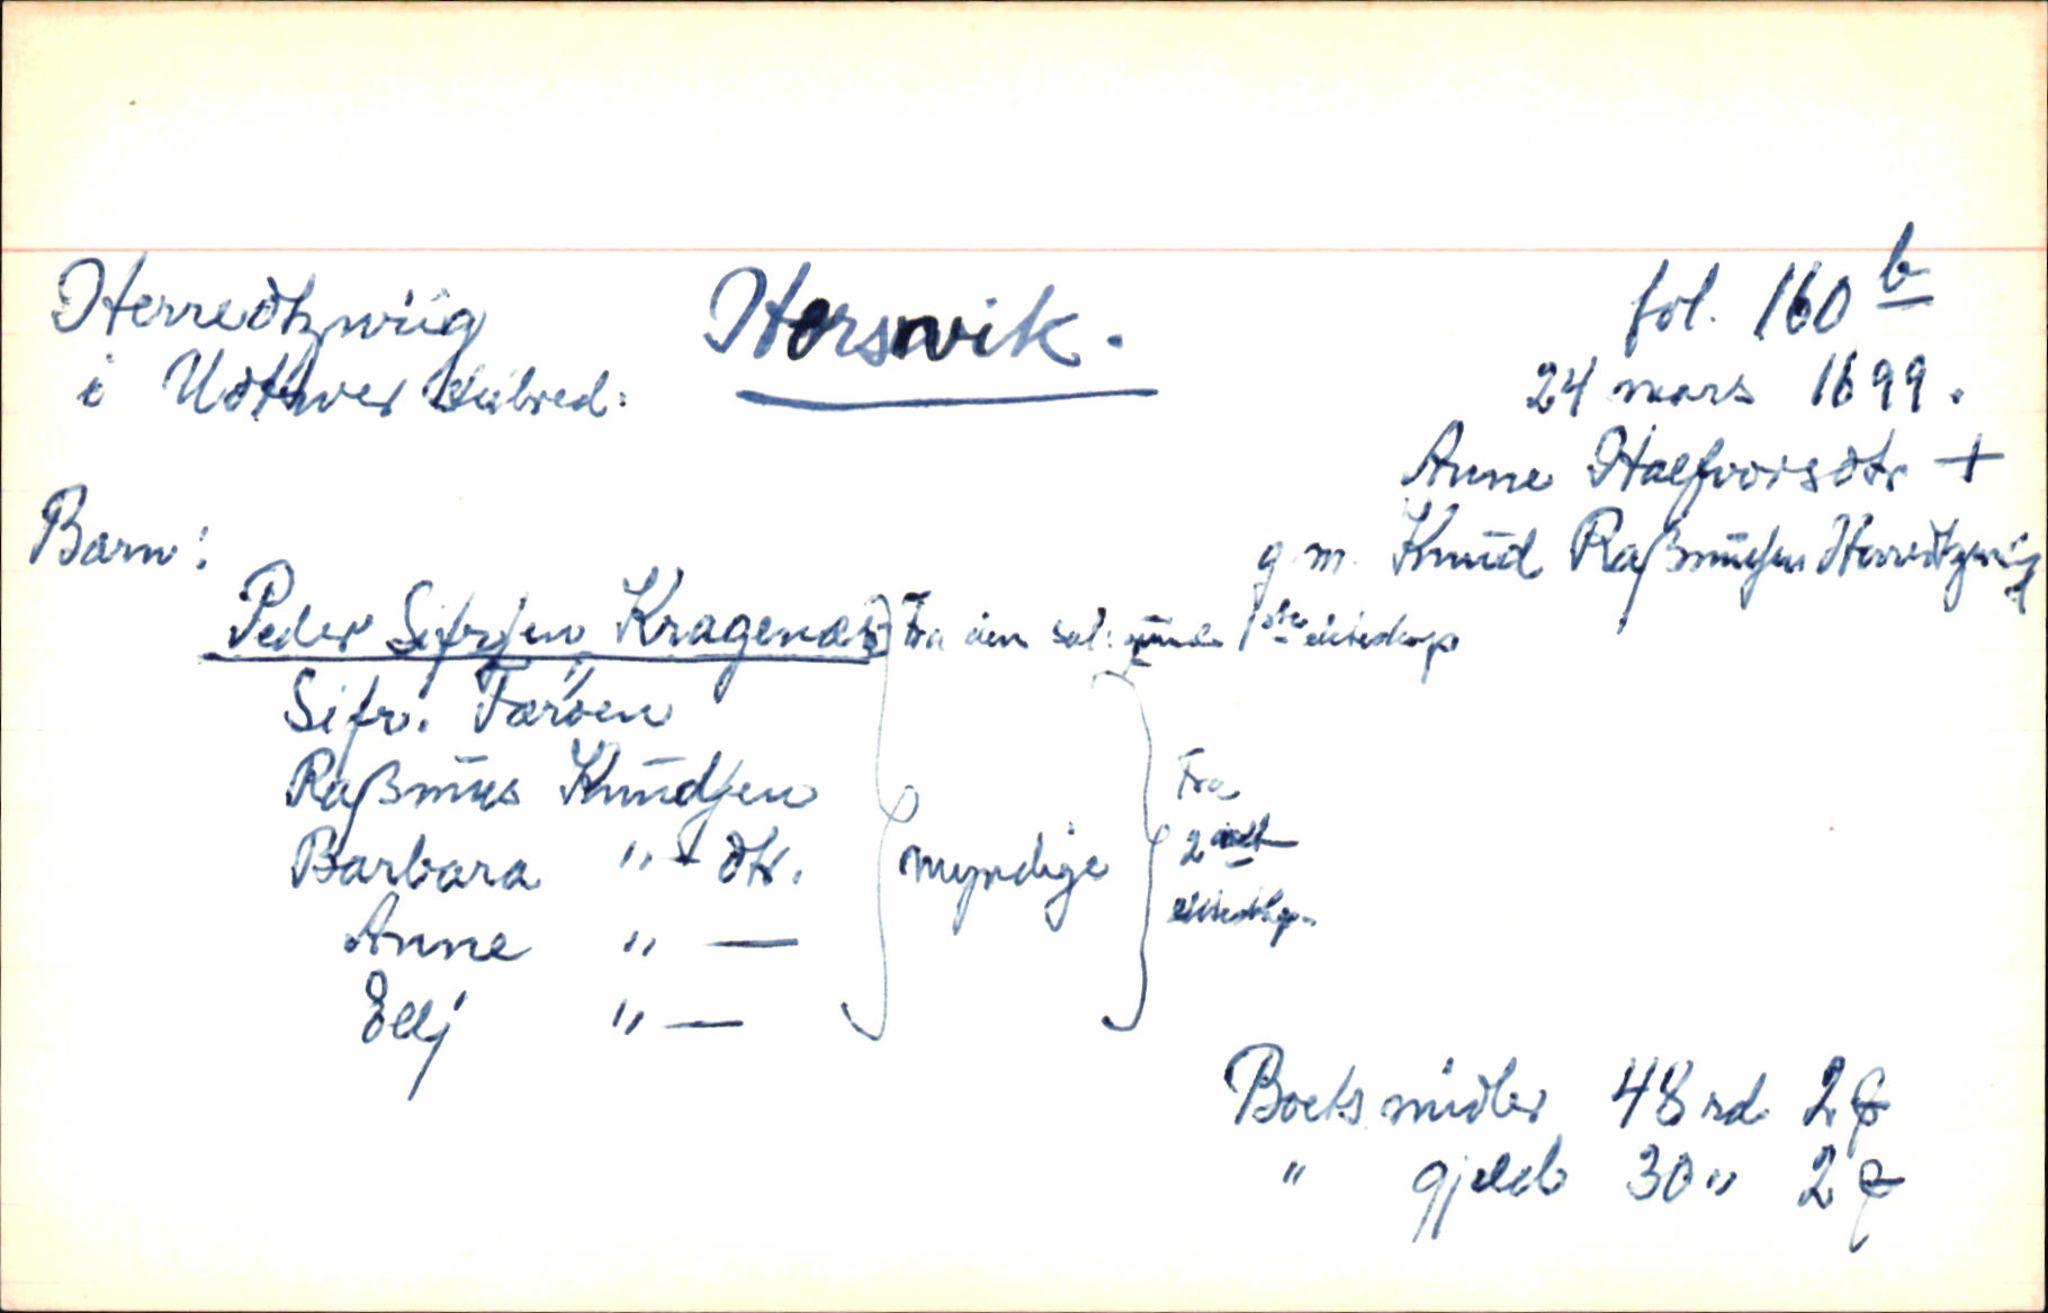 Herredtzwiig
i Udthver skibred:
Horsvik.
fol. 160 b
24 mars 1699.
Anne Halfvorsdtr +
g. m. Knud Raßmusen Herredtzwiig
Barn:
Peder Sifrsen Kragenæs Fra den sal: qvindes 1ste ekteskap
Sifr. Tarven
Raßmus Knudsen
Barbara " - dtr.
Anne " —
Ellj " —
myndige
Fra
2det
ekteskap.
Boets midler 48 rd. 2 ß
" gjeld 30 " 2 ß